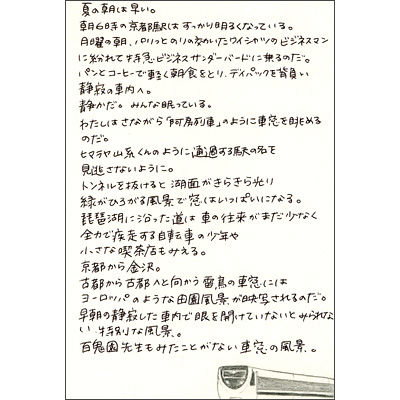 夏の朝は早い。
朝6時の京都駅はすっかり明るくなっている。
月曜の朝、パリッとのりの効いたワイシャツのビジネスマン
に紛れて特急・ビジネスサンダーバードに乗るのだ。
パンとコーヒーで軽く朝食をとり、デイパックを背負い
静寂の車内へ。
静かだ。みんな眠っている。
わたしはさながら「阿房列車」のように車窓を眺める
のだ。
ヒマラヤ山系くんのように通過する駅の名を
見逃さないように。
トンネルを抜けると湖面がきらきら光り
緑がひろがる風景で窓はいっぱいになる。
琵琶湖に沿った道は車の往来がまだ少なく
全力で疾走する自転車の少年や
小さな喫茶店もみえる。
京都から金沢。
古都から古都へと向かう雷鳥の車窓には
ヨーロッパのような田園風景が映写されるのだ。
早朝の静寂した車内で眼を開けていないとみられな
い特別な風景。
百鬼園先生もみたことがない車窓の風景。